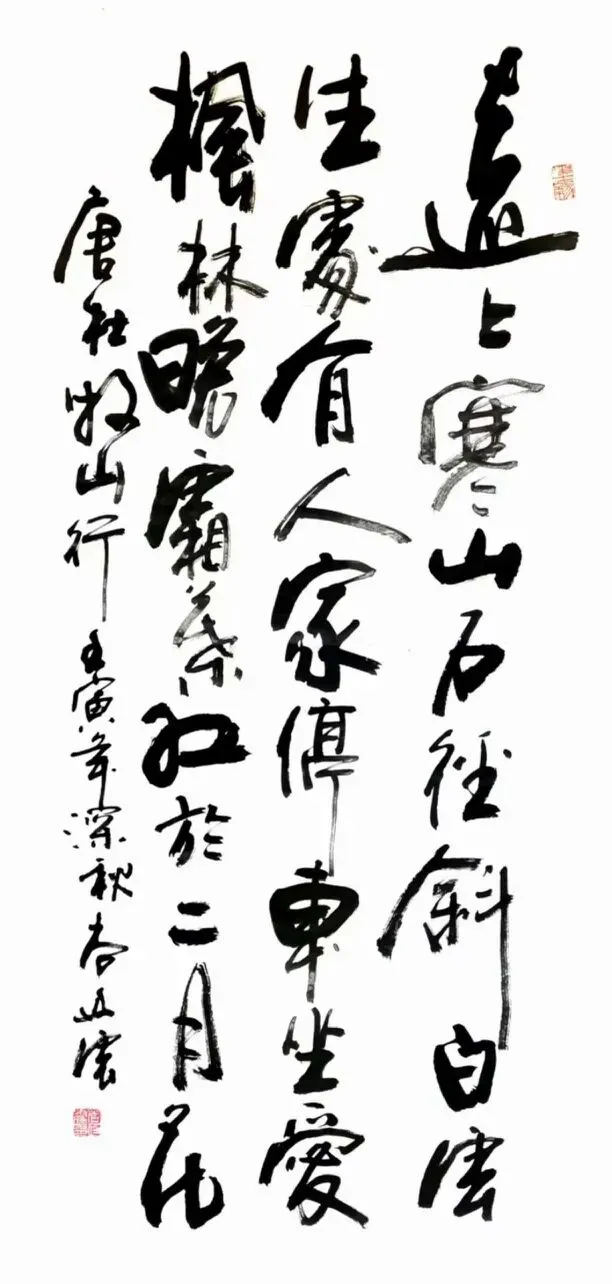 遠上寒山石徑斜白雲
生處有人家停車坐愛
楓林晚霜葉紅於二月花
唐杜牧山行壬寅年深秋雲